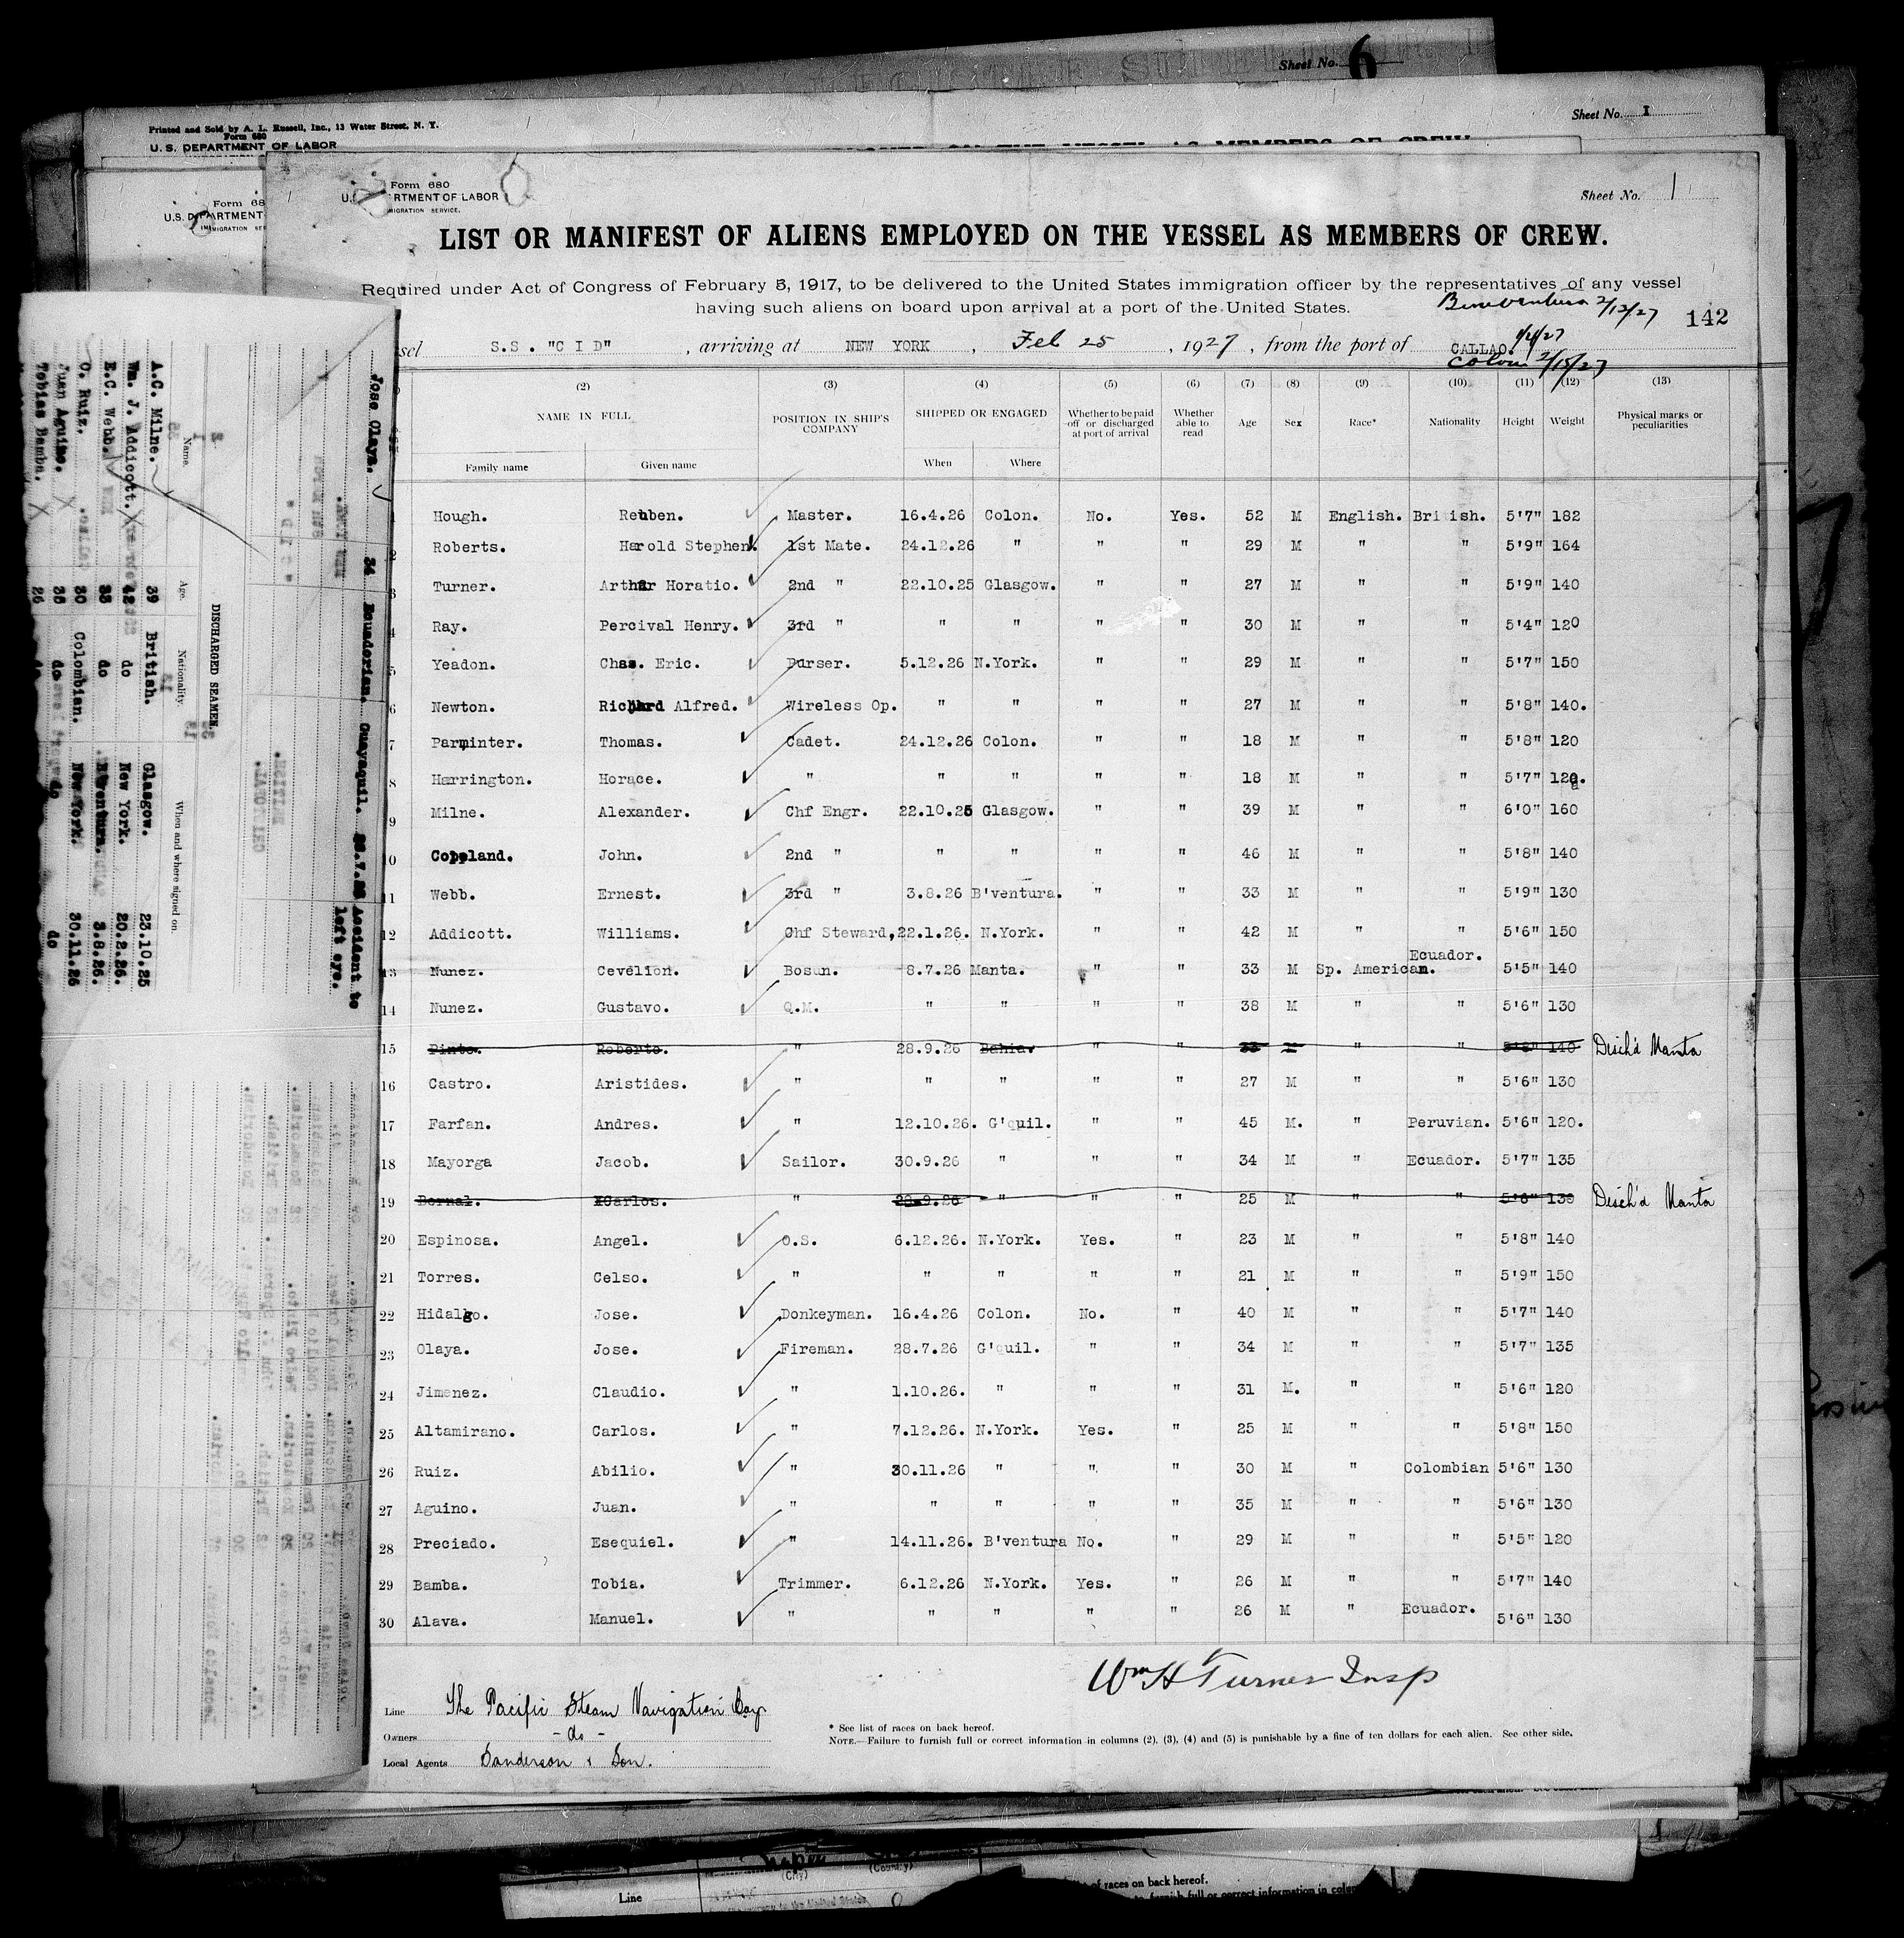 Sheet No. 6
Printed and Sold by A. L. Russell, Inc., 13 Water Street, N. Y.
Form 680
U. S. DEPARTMENT OF LABOR
Sheet No. 1
Form 68
U.S. DEPARTMENT
IMMIGRATION SER
Form 680
U.S. DEPARTMENT OF LABOR
IMMIGRATION SERVICE.
Sheet No. 1
LIST OR MANIFEST OF ALIENS EMPLOYED ON THE VESSEL AS MEMBERS OF CREW.
Required under Act of Congress of February 5, 1917, to be delivered to the United States immigration officer by the representatives of any vessel
having such aliens on board upon arrival at a port of the United States.
Buenventura 2/12/27
142
sel S.S. "C I D", arriving at NEW YORK, Feb 25, 1927, from the port of CALLAO.
Colon 2/15/27
(2) (3) (4) (5) (6) (7) (8) (9) (10) (11) (12) (13)
NAME IN FULL POSITION IN SHIP'S COMPANY SHIPPED OR ENGAGED Whether to be paid off or discharged at port of arrival Whether able to read Age Sex Race* Nationality Height Weight Physical marks or peculiarities
Family name Given name When Where
1 Hough. Reuben. Master. 16.4.26 Colon. No. Yes. 52 M English. British. 5'7" 182
2 Roberts. Harold Stephen. 1st Mate. 24.12.26 " " " 29 M " " 5'9" 164
3 Turner. Arthur Horatio. 2nd " 22.10.25 Glasgow. " " 27 M " " 5'9" 140
4 Ray. Percival Henry. 3rd " " " " " 30 M " " 5'4" 120
5 Yeadon. Chas. Eric. Purser. 5.12.26 N.York. " " 29 M " " 5'7" 150
6 Newton. Richard Alfred. Wireless Op. " " " " 27 M " " 5'8" 140.
7 Parminter. Thomas. Cadet. 24.12.26 Colon. " " 18 M " " 5'8" 120
8 Harrington. Horace. " " " " " 18 M " " 5'7" 120.
9 Milne. Alexander. Chf Engr. 22.10.25 Glasgow. " " 39 M " " 6'0" 160
10 Copeland. John. 2nd " " " " " 46 M " " 5'8" 140
11 Webb. Ernest. 3rd " 3.8.26 B'ventura. " " 33 M " " 5'9" 130
12 Addicott. Williams. Chf Steward, 22.1.26. N.York. " " 42 M " " 5'6" 150
13 Nunez. Cevelion. Bosun. 8.7.26 Manta. " " 33 M Sp. American. Ecuador. 5'5" 140
14 Nunez. Gustavo. Q.M. " " " " 38 M " " 5'6" 130
15 Pinto. Roberto. " 28.9.26 Bahia. " " 33 M " " 5'8" 140 Disch'd Manta
16 Castro. Aristides. " " " " " 27 M " " 5'6" 130
17 Farfan. Andres. " 12.10.26. G'quil. " " 45 M. " Peruvian. 5'6" 120.
18 Mayorga Jacob. Sailor. 30.9.26 " " " 34 M " Ecuador. 5'7" 135
19 Bernal. Carlos. " 20.9.26 " " " 25 M " " 5'6" 130 Disch'd Manta
20 Espinosa. Angel. O.S. 6.12.26. N.York. Yes. " 23 M " " 5'8" 140
21 Torres. Celso. " " " " " 21 M " " 5'9" 150
22 Hidalgo. Jose. Donkeyman. 16.4.26 Colon. No. " 40 M " " 5'7" 140
23 Olaya. Jose. Fireman. 28.7.26 G'quil. " " 34 M " " 5'7" 135
24 Jimenez. Claudio. " 1.10.26. " " " 31 M. " " 5'6" 120
25 Altamirano. Carlos. " 7.12.26. N.York. Yes. " 25 M " " 5'8" 150
26 Ruiz. Abilio. " 30.11.26 " " " 30 M " Colombian 5'6" 130
27 Aguino. Juan. " " " " " 35 M " " 5'6" 130
28 Preciado. Esequiel. " 14.11.26. B'ventura No. " 29 M " " 5'5" 120
29 Bamba. Tobia. Trimmer. 6.12.26 N.York. Yes. " 26 M " " 5'7" 140
30 Alava. Manuel. " " " " " 26 M " Ecuador. 5'6" 130
Wm H Turner Insp
Line The Pacific Steam Navigation Coy
Owners - do -
Local Agents Sanderson & Son.
* See list of races on back hereof.
NOTE.—Failure to furnish full or correct information in columns (2), (3), (4) and (5) is punishable by a fine of ten dollars for each alien. See other side.
DISCHARGED SEAMEN.
Name. Age. Nationality. When and where signed on.
A.C. Milne. 39 British. Glasgow. 23.10.25
Wm. J. Addicott. 42 do New York. 20.2.26.
E.C. Webb. 33 do B'ventura. 3.8.26.
O. Ruiz. 30 Colombian. New York. 30.11.26
Juan Aguino. 35 do do do
Tobias Bamba. 26 do
Jose Olaya. 34 Ecuadorian. Guayaquil. 28.7.26 Accident to
left eye.
(City) (County)
Line
of races on back hereof.